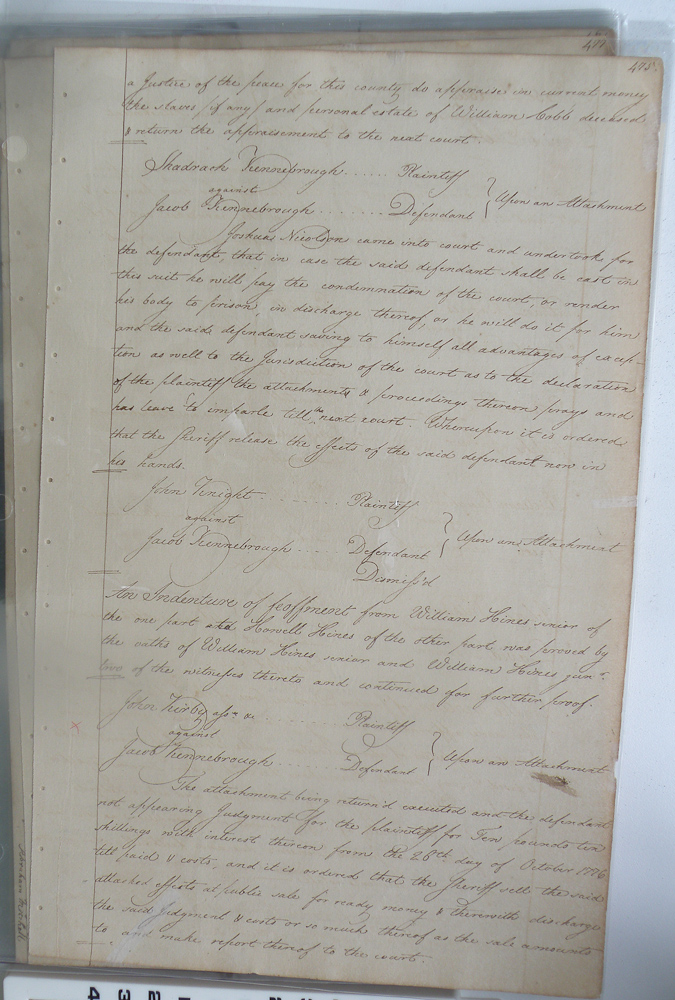 477
475.
a Justice of the peace for this county do appraise in current money
the slaves (if any) and personal estate of William Cobb deceased
& return the appraisement to the next court.
Shadrach Kennebrough ...... Plaintiff
against
Upon an Attachment
Jacob Kennebrough ........ Defendant
Joshua Nicolson came into court and undertook for
the defendant, that in case the said defendant shall be cast in
this suit he will pay the condemnation of the court, or render
his body to prison, in discharge thereof, or he will do it for him
and the said defendant saving to himself all advantages of excep-
tion as well to the Jurisdiction of the court as to the declaration
of the plaintiff the attachments & proceedings thereon prays and
has leave to imparle till the next court. Whereupon it is ordered
that the Sheriff release the effects of the said defendant now in
his hands.
John Knight .......... Plaintiff
against
Upon an Attachment
Jacob Kennebrough ..... Defendant
Dismiss'd
An Indenture of feoffment from William Hines senior of
the one part and Howell Hines of the other part was proved by
the oaths of William Hines senior and William Hines junr.
two of the witnesses thereto and continued for further proof.
John Kirby assee &c .......... Plaintiff
against
Upon an Attachment
Jacob Kennebrough ........ Defendant
The attachment being return'd executed and the defendant
not appearing Judgment for the plaintiff for Ten pounds ten
shillings with interest thereon from the 26th day of October 1786
till paid & costs, and it is ordered that the Sheriff sell the said
attached effects at public sale for ready money & therewith discharge
the said Judgment & costs or so much thereof as the sale amounts
to and make report thereof to the court.